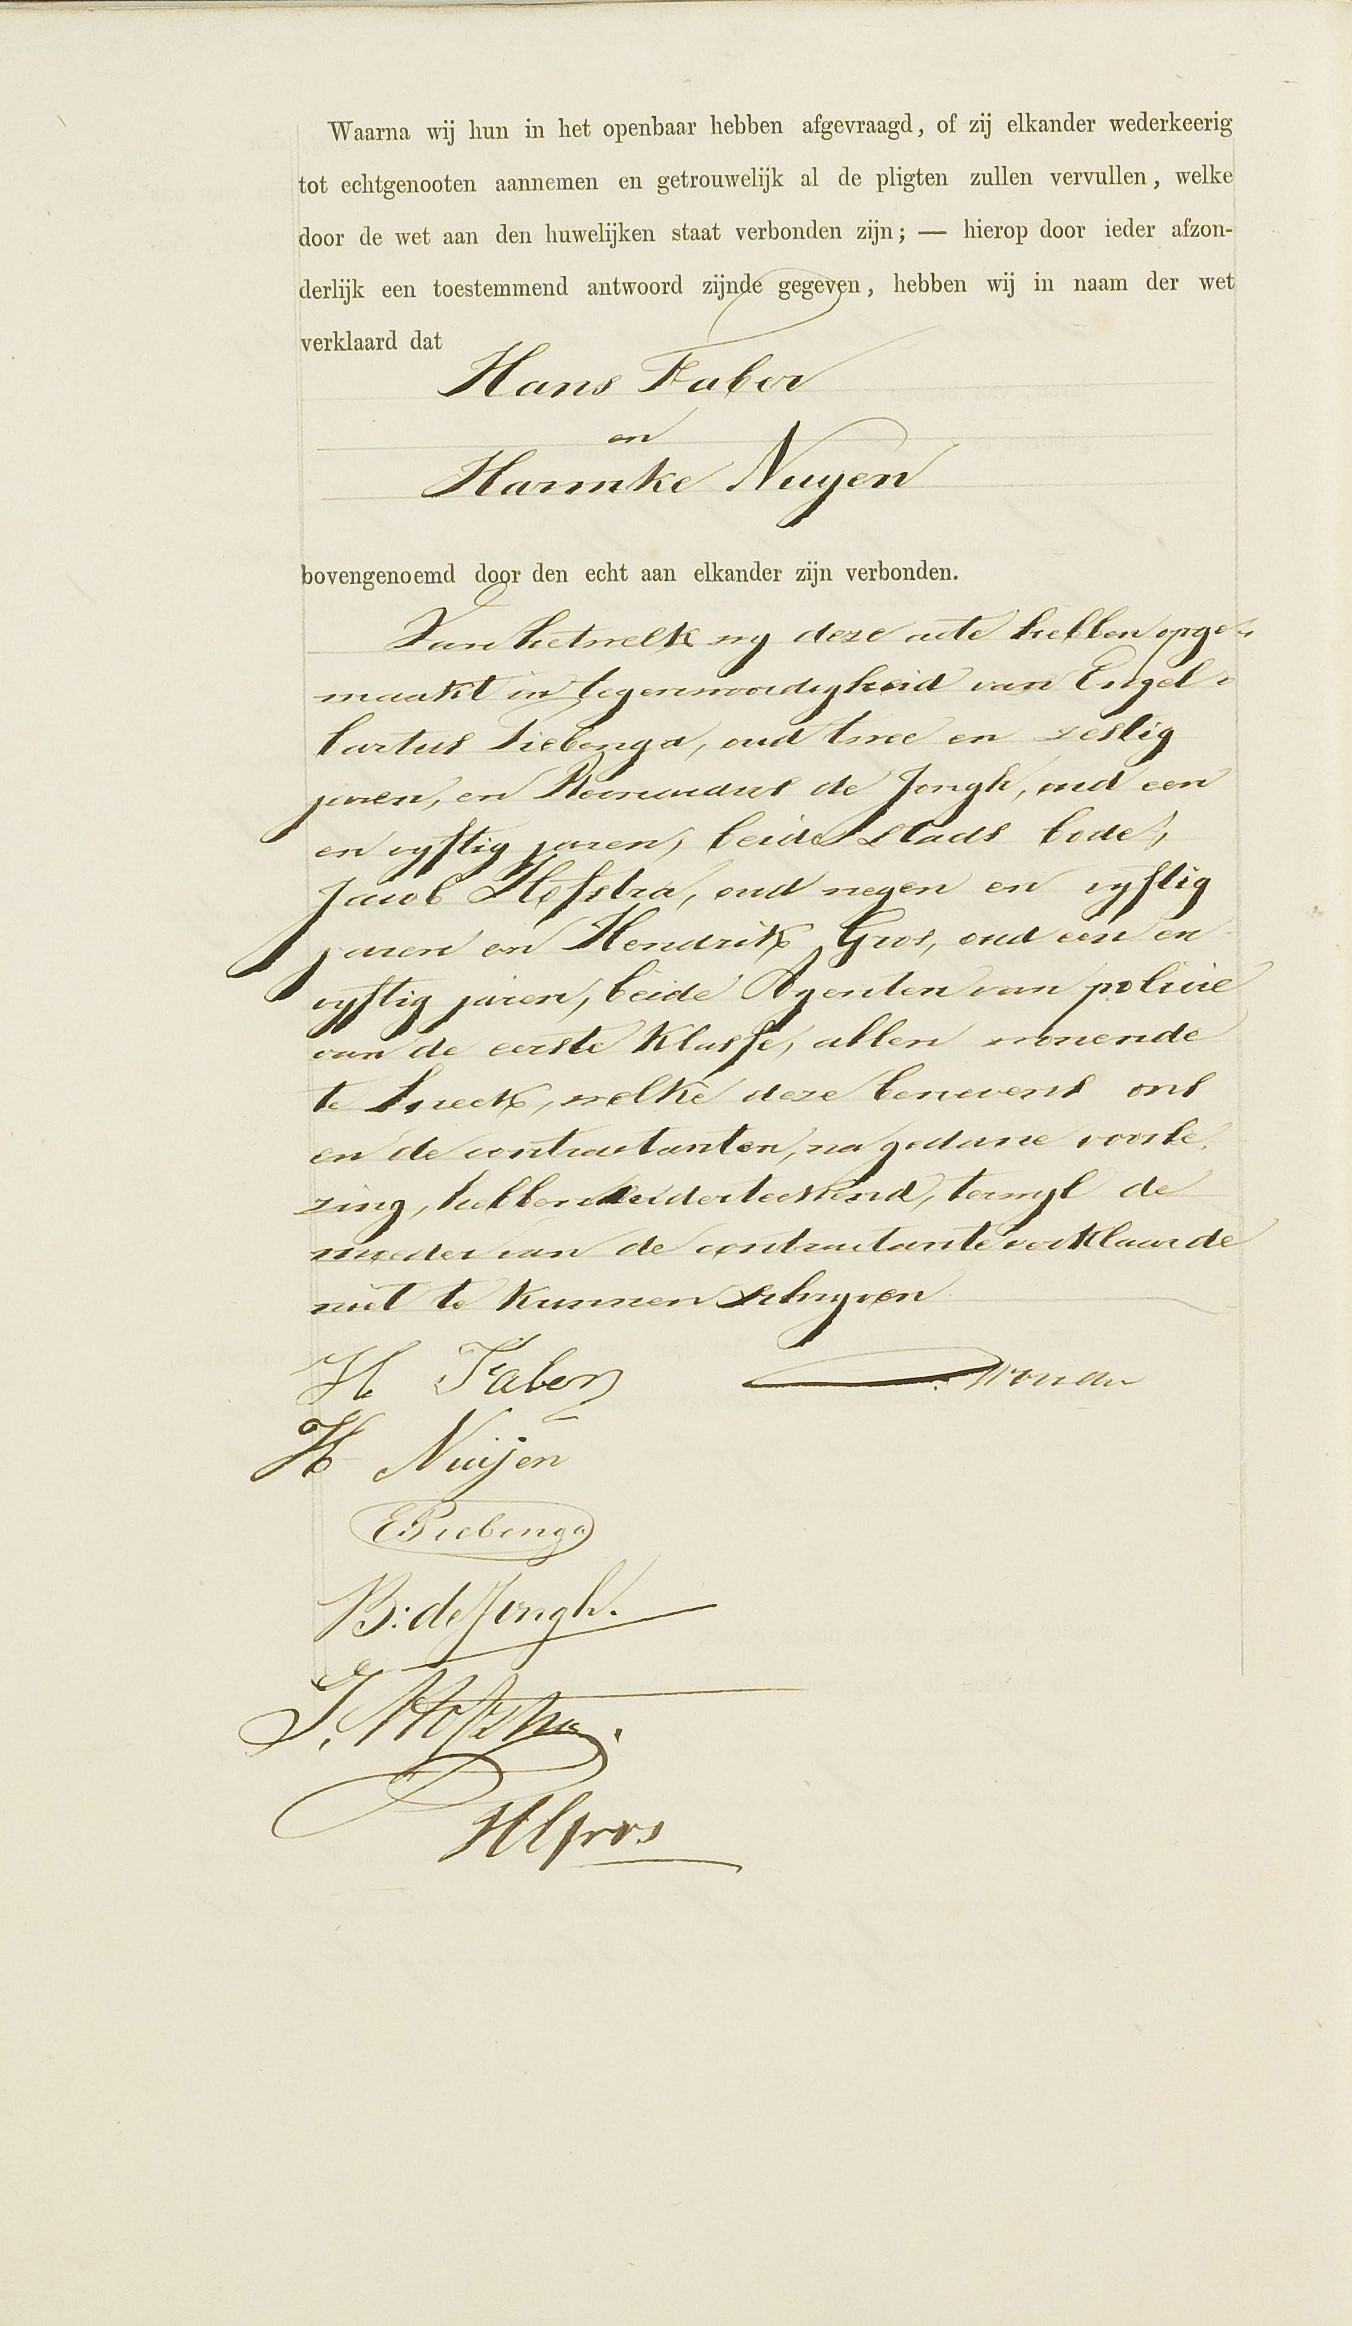 Waarna wij hun in het openbaar hebben afgevraagd, of zij elkander wederkeerig
tot echtgenooten aannemen en getrouwelijk al de pligten zullen vervullen, welke
door de wet aan den huwelijken staat verbonden zijn; — hierop door ieder afzon-
derlijk een toestemmend antwoord zijnde gegeven, hebben wij in naam der wet
verklaard dat
Hans Faber
en
Harmke Nuyen
bovengenoemd door den echt aan elkander zijn verbonden.
Van hetwelk wy deze acte hebben opge-
maakt in tegenwoordigheid van Engel-
bartus Piebenga, oud twee en zestig
jaren, en Bernardus de Jongh, oud een
en vyftig jaren, beide stads bode,
Jacob Hofstra, oud negen en vyftig
jaren en Hendrik Gros, oud een en
vyftig jaren, beide Agenten van policie
van de eerste Klasse, allen wonende
te Sneek, welke deze benevens ons
en de contractanten, na gedane voorle-
zing, hebben onderteekend, terwyl de
moeder van de contractante verklaarde
niet te kunnen schryven
H Faber
H Nuijen
E Piebenga
B: de Jongh.
J. Hofstra.
H Gros